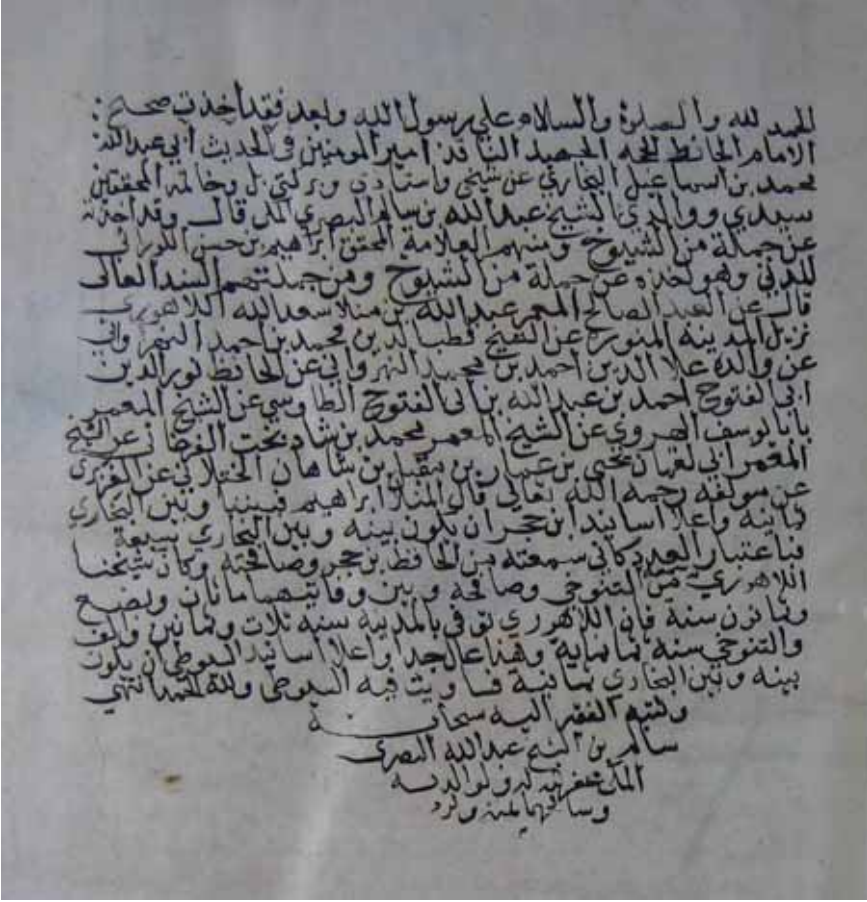 الحمد لله والصلوة والسلام علي رسول الله وبعد فقد اخذت صحيح
الامام الحافظ الحجه الجهبد الناقد امير المومنين في الحديث ابي عبدالله
محمد بن اسماعيل البخاري عن شيخي واستادي وبركتي بل وخاتمة المحققين
سيدي ووالدي الشيخ عبدالله بن سالم البصري المكي قال وقد اخذته
عن جملة من الشيوخ ومنهم العلامة المحقق ابراهيم بن حسن الكوراني
المدني وهو اخذه عن جملة من الشيوخ ومن جملتهم السند العالي
قال عن العبد الصالح المعمر عبدالله بن منلا سعدالله اللاهوري
نزيل المدينه المنوره عن الشيخ قطب الدين محمد بن احمد النهرواني
عن والده علا الدين احمد بن محمد النهرواني عن الحافظ نور الدين
ابي الفتوح احمد بن عبدالله بن ابي الفتوح الطاوسي عن الشيخ المعمر
بابا يوسف الهروي عن الشيخ المعمر محمد بن شاد بخت الفرغاني عن الشيخ
المعمر ابي لقمان يحيى بن عمار بن مقبل بن شاهان الختلاني عن الفربري
عن مولفه رحمه الله تعالي قال المنلا ابراهيم فبيننا وبين البخاري
ثمانية واعلا اسانيد ابن حجر ان يكون بينه وبين البخاري سبعة
فباعتبار العدد كاني سمعته من الحافظ بن حجر وصافحته وكان شيخنا
اللاهوري من التنوخي وصافحه وبين وفاتيهما ماتان وبضع
وثمانون سنة فان اللاهوري توفي بالمدينه سنه ثلاث وثمانين والف
والتنوخي سنه ثمانماية وهذا عال جدا واعلا اسانيد السيوطي ان يكون
بينه وبين البخاري ثمانية فساويت فيه السيوطي ولله الحمد انتهي
وكتبه الفقير اليه سبحانه
سالم بن الشيخ عبدالله البصري
المكي غفر الله له ولوالديه